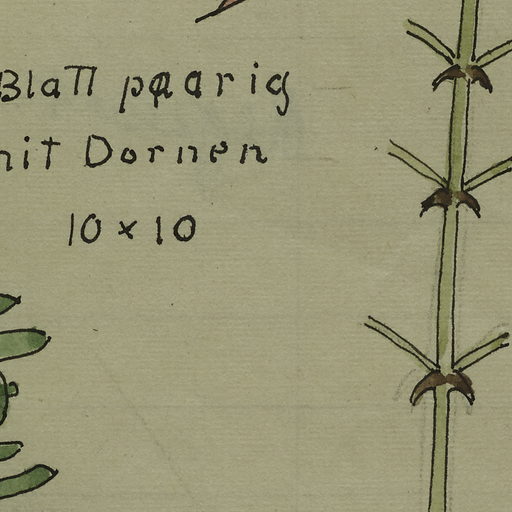 Blatt paarig
mit Dornen
10 × 10